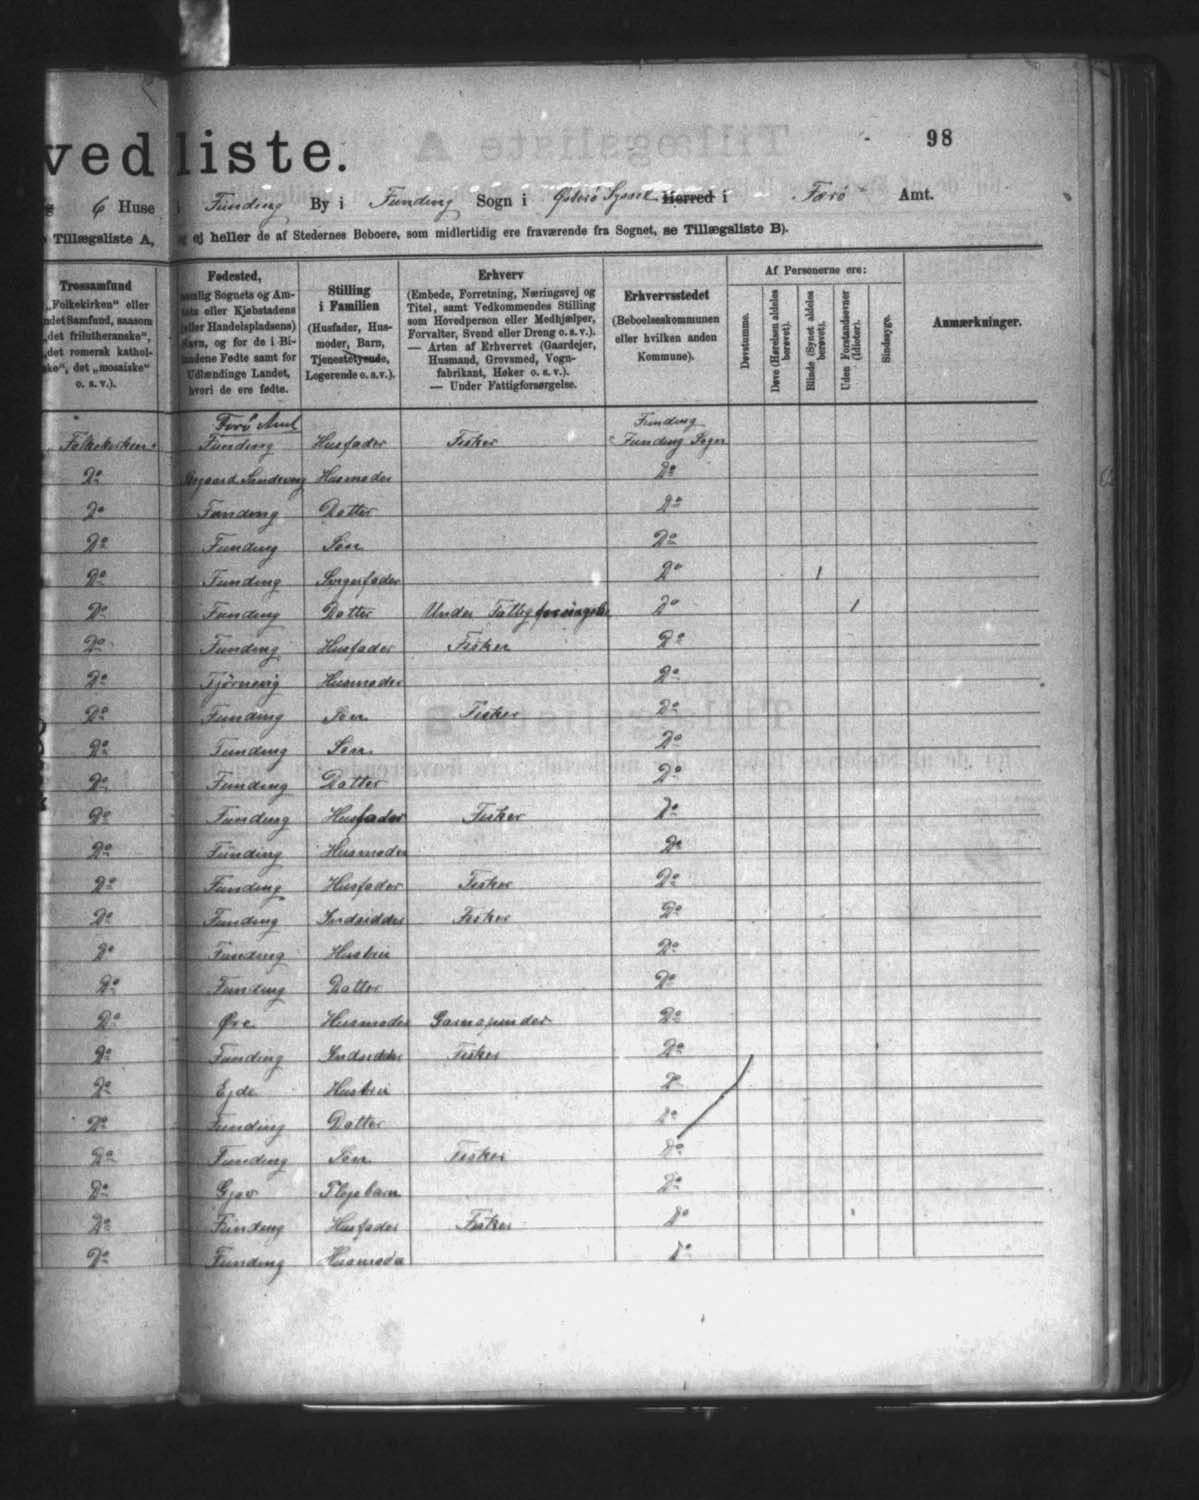 vedliste.
98
6 Huse i Funding By i Funding Sogn i Østerø Syssel Herred i Færø Amt.
Tillægsliste A, ej heller de af Stedernes Beboere, som midlertidig ere fraværende fra Sognet, se Tillægsliste B).
Trossamfund
„Folkekirken“ eller
ndet Samfund, saasom
„det frilutheranske“,
„det romersk kathol-
ske“, det „mosaiske“
o. s. v.).
Fødested,
nemlig Sognets og Am-
tets eller Kjøbstadens
(eller Handelspladsens)
Navn, og for de i Bi-
landene Fødte samt for
Udlændinge Landet,
hvori de ere fødte.
Stilling
i Familien
(Husfader, Hus-
moder, Barn,
Tjenestetyende,
Logerende o. s. v.).
Erhverv
(Embede, Forretning, Næringsvej og
Titel, samt Vedkommendes Stilling
som Hovedperson eller Medhjælper,
Forvalter, Svend eller Dreng o. s. v.).
— Arten af Erhvervet (Gaardejer,
Husmand, Grovsmed, Vogn-
fabrikant, Høker o. s. v.).
— Under Fattigforsørgelse.
Erhvervsstedet
(Beboelseskommunen
eller hvilken anden
Kommune).
Af Personerne ere:
Døvstumme.
Døve (Hørelsen aldeles
berøvet).
Blinde (Synet aldeles
berøvet).
Uden Forstandsevner
(Idioter).
Sindssyge.
Anmærkninger.
Færø Amt Funding
Folkekirken Funding Husfader Fisker Funding Sogn
Do Husmoder Do
Do Funding Datter Do
Do Funding Søn Do
Do Funding Svigerfader Do 1
Do Funding Datter Under Fattigforsørgelse Do 1
Do Funding Husfader Fisker Do
Do Tjørnevig Husmoder Do
Do Funding Søn Fisker Do
Do Funding Søn Do
Do Funding Datter Do
Do Funding Husfader Fisker Do
Do Funding Husmoder Do
Do Funding Husfader Fisker Do
Do Funding Indsidder Fisker Do
Do Funding Hustru Do
Do Funding Datter Do
Do Øre Husmoder Garnspinder Do
Do Funding Indsidder Fisker Do
Do Ejde Hustru Do
Do Funding Datter Do
Do Funding Søn Fisker Do
Do Gjov Plejebarn Do
Do Funding Husfader Fisker Do
Do Funding Husmoder Do